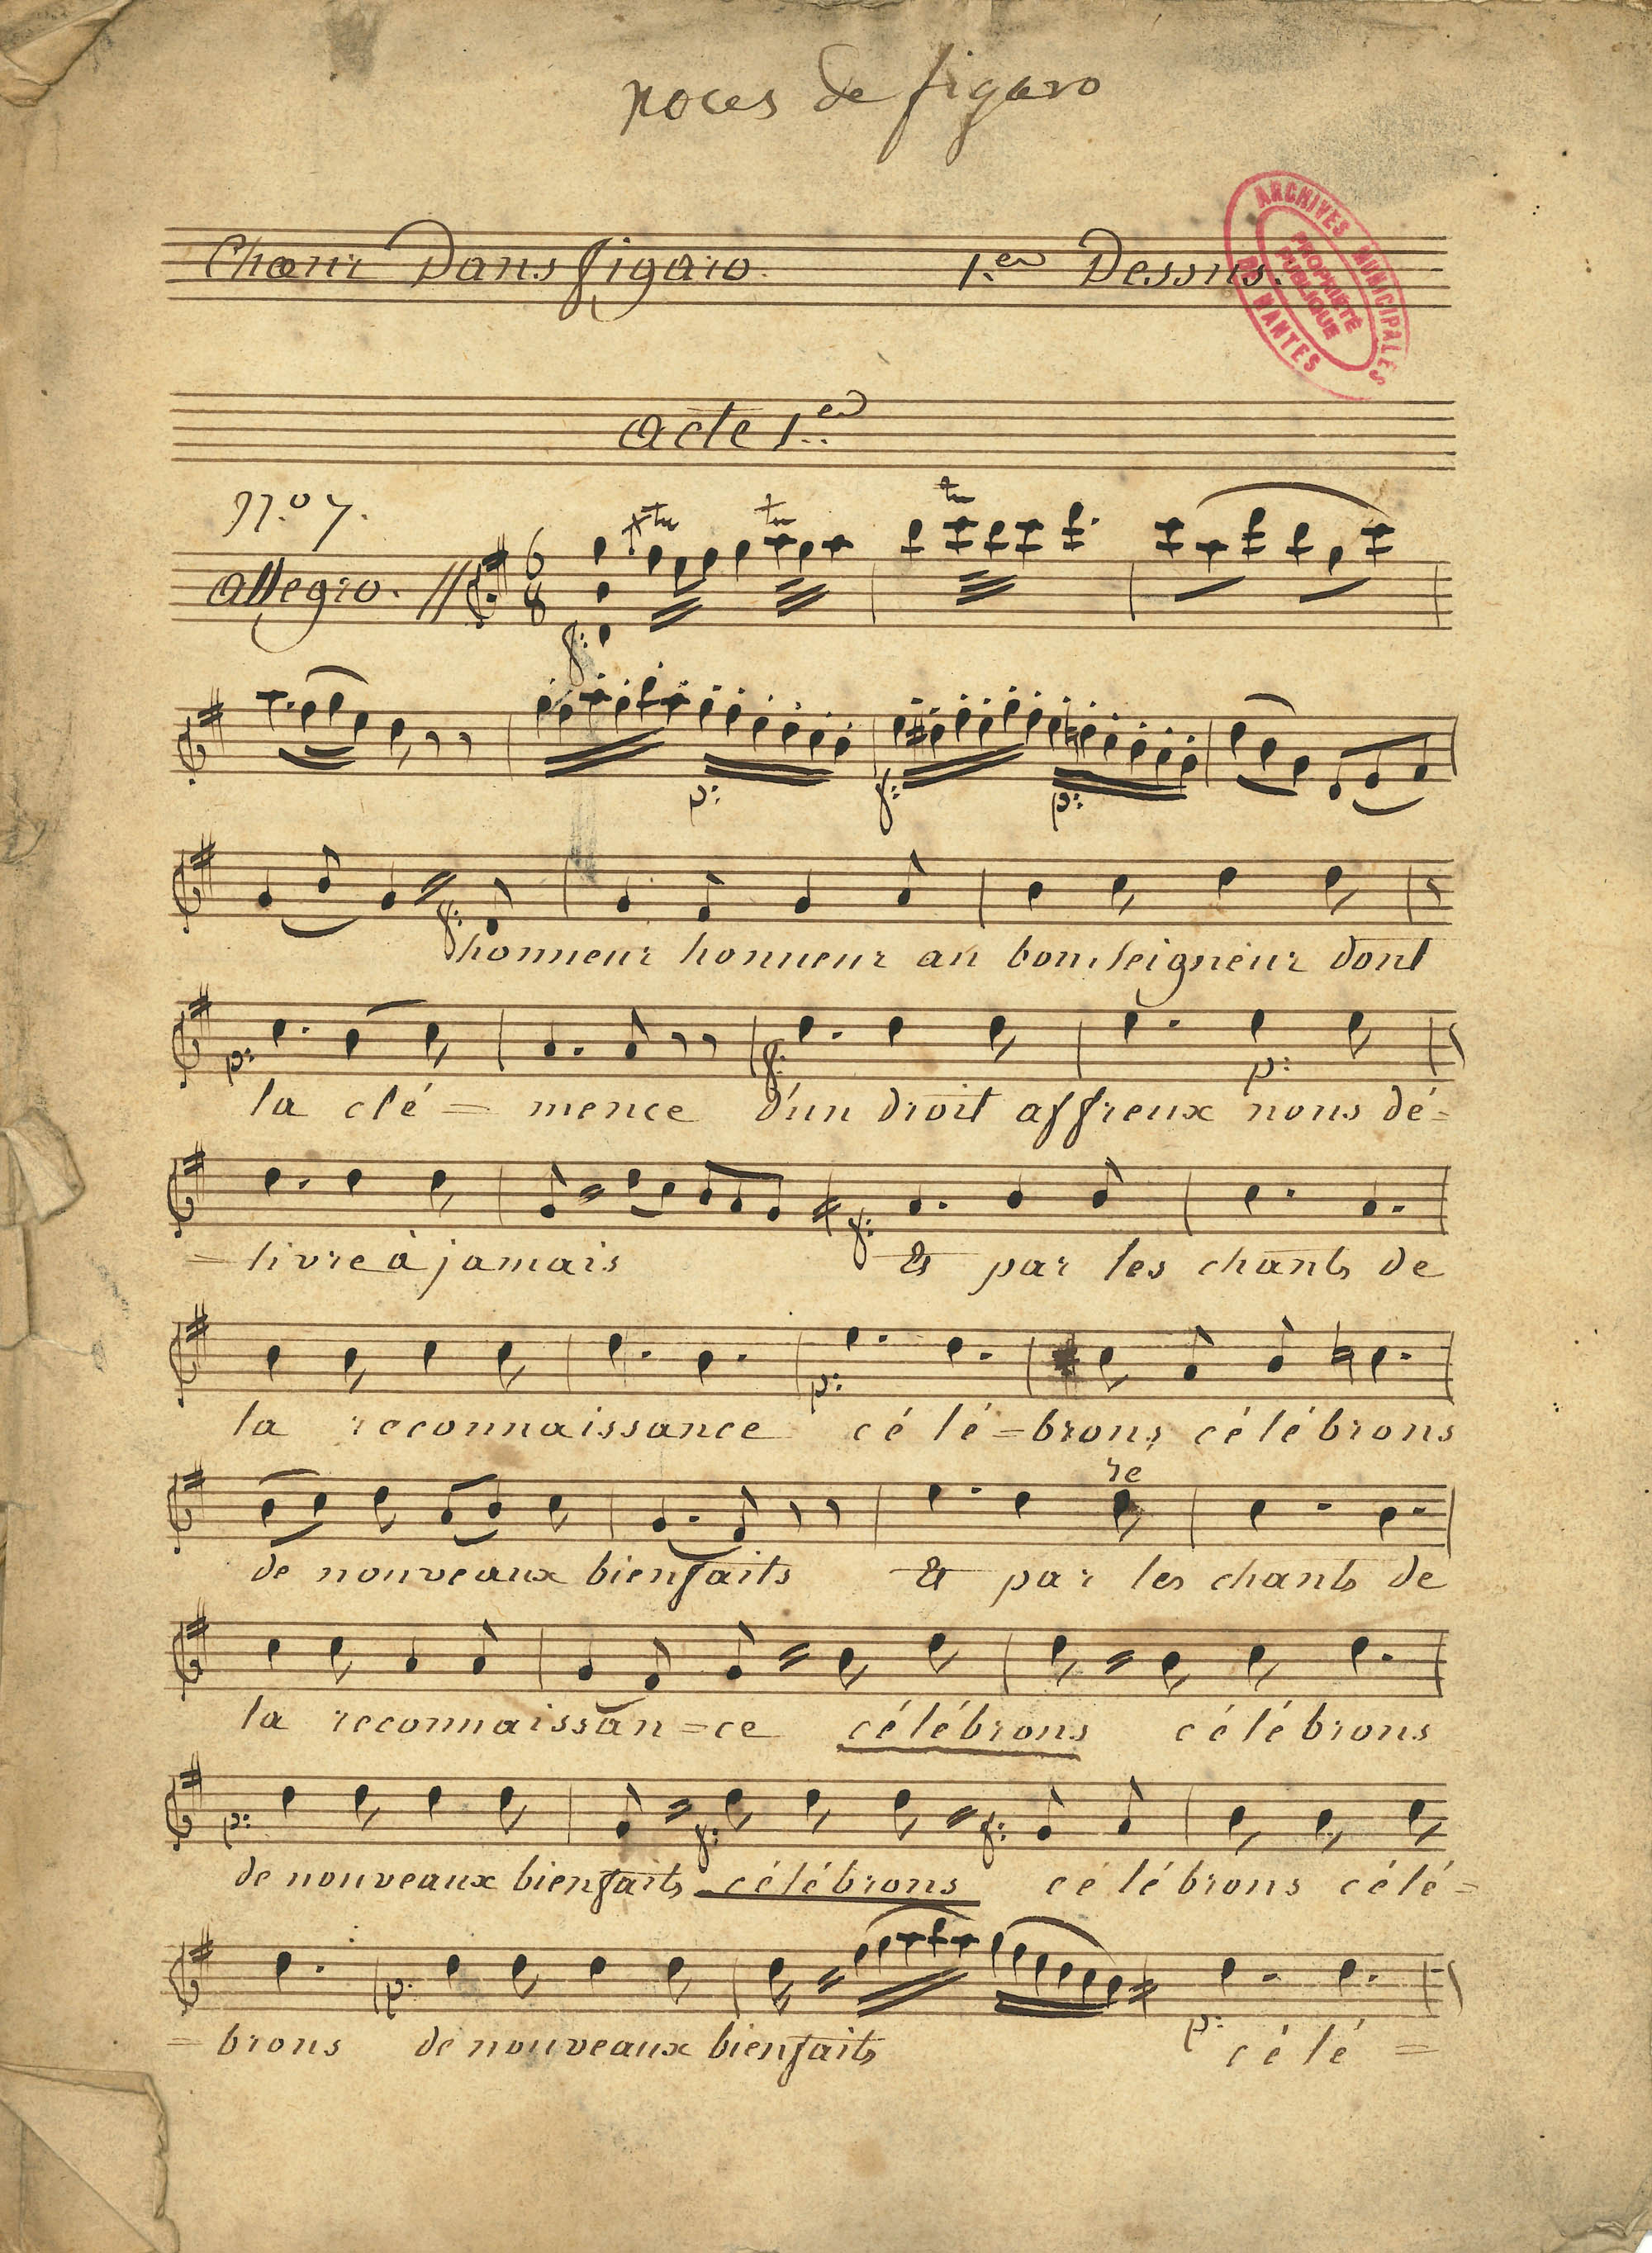 noces de figaro
Chœur Dans figaro. 1.er Dessus.
ARCHIVES MUNICIPALES DE NANTES
PROPRIÉTÉ PUBLIQUE
acte 1.er
N.o 7.
allegro.
honneur honneur au bon seigneur dont
la clé = mence d'un droit affreux nous dé =
= livre à jamais & par les chants de
la reconnaissance cé lé = brons célébrons
re
de nouveaux bienfaits & par les chants de
la reconnaissan = ce célébrons célébrons
de nouveaux bienfaits célébrons célébrons célé =
= brons de nouveaux bienfaits célé =